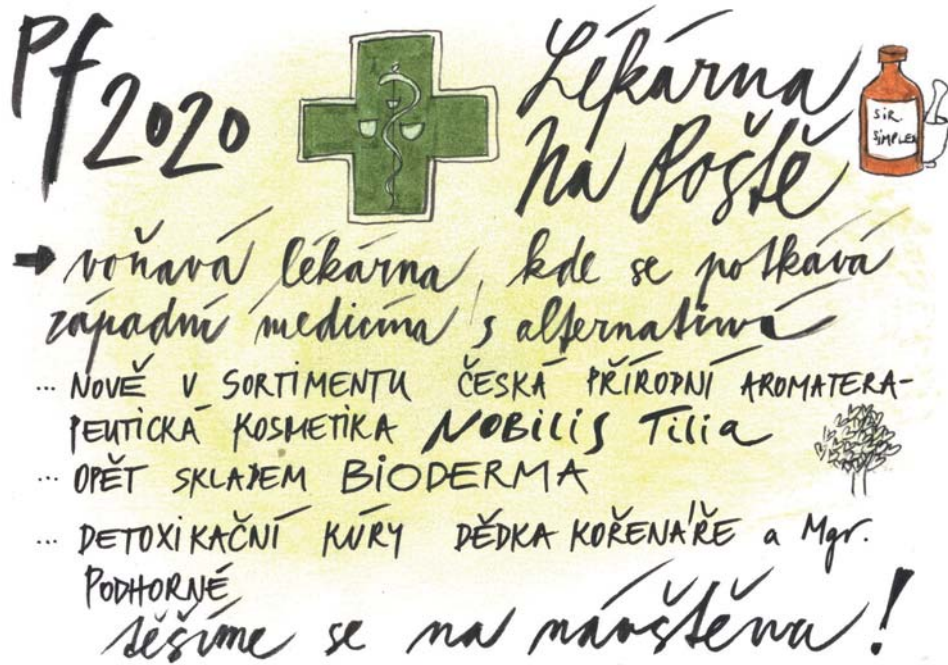 Pf 2020
Lékárna
Na Poště
SIR.
SIMPLEX
→ voňavá lékárna, kde se potkává
západní medicína s alternativou
... NOVĚ V SORTIMENTU ČESKÁ PŘÍRODNÍ AROMATERA-
PEUTICKÁ KOSMETIKA NOBILIS Tilia
... OPĚT SKLADEM BIODERMA
... DETOXIKAČNÍ KÚRY DĚDKA KOŘENÁŘE a Mgr.
PODHORNÉ
těšíme se na návštěvu!